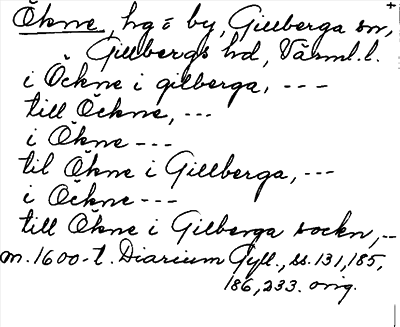 Ökne, hg o by, Gillberga sn, +
Gillbergs hd, Värml. l.
i Öckne i gilberga, ---
till Öckne, ---
i Ökne ---
til Ökne i Gillberga, ---
i Öckne ---
till Ökne i Gilberga sockn, --
m. 1600-t. Diarium Gyll., ss. 131, 185,
186, 233. orig.